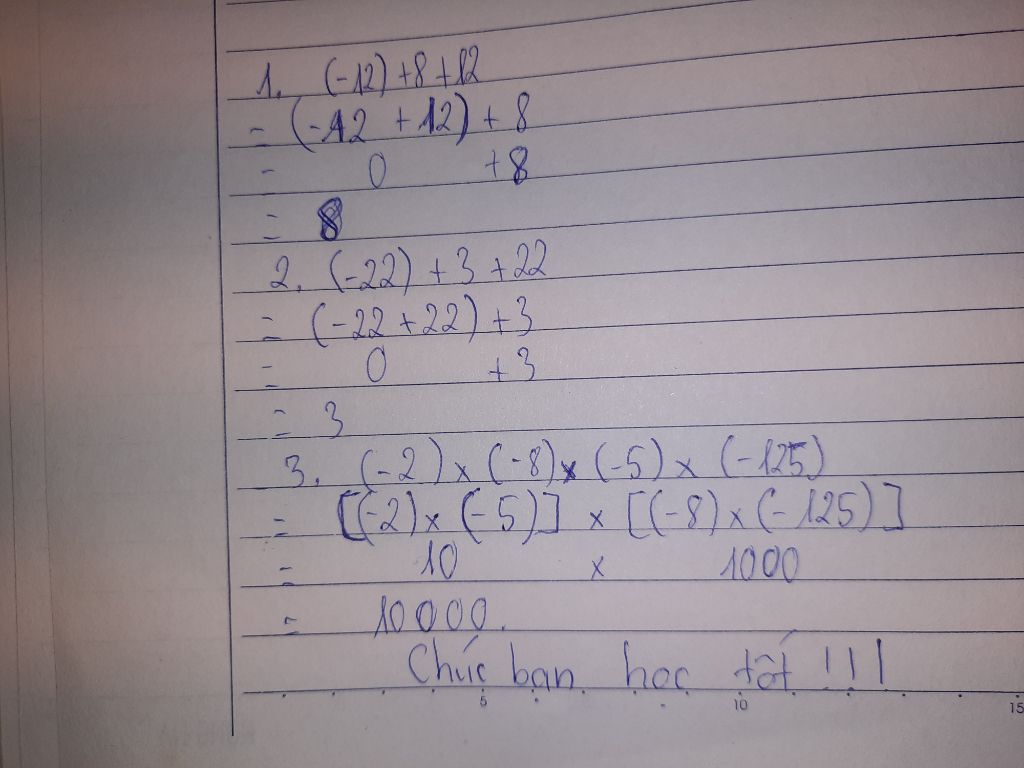 1. (-12) + 8 + 12
= (-12 + 12) + 8
= 0 + 8
= 8
2. (-22) + 3 + 22
= (-22 + 22) + 3
= 0 + 3
= 3
3. (-2) x (-8) x (-5) x (-125)
= [(-2) x (-5)] x [(-8) x (-125)]
= 10 x 1000
= 10000.
Chúc bạn học tốt !!!
5 10 15